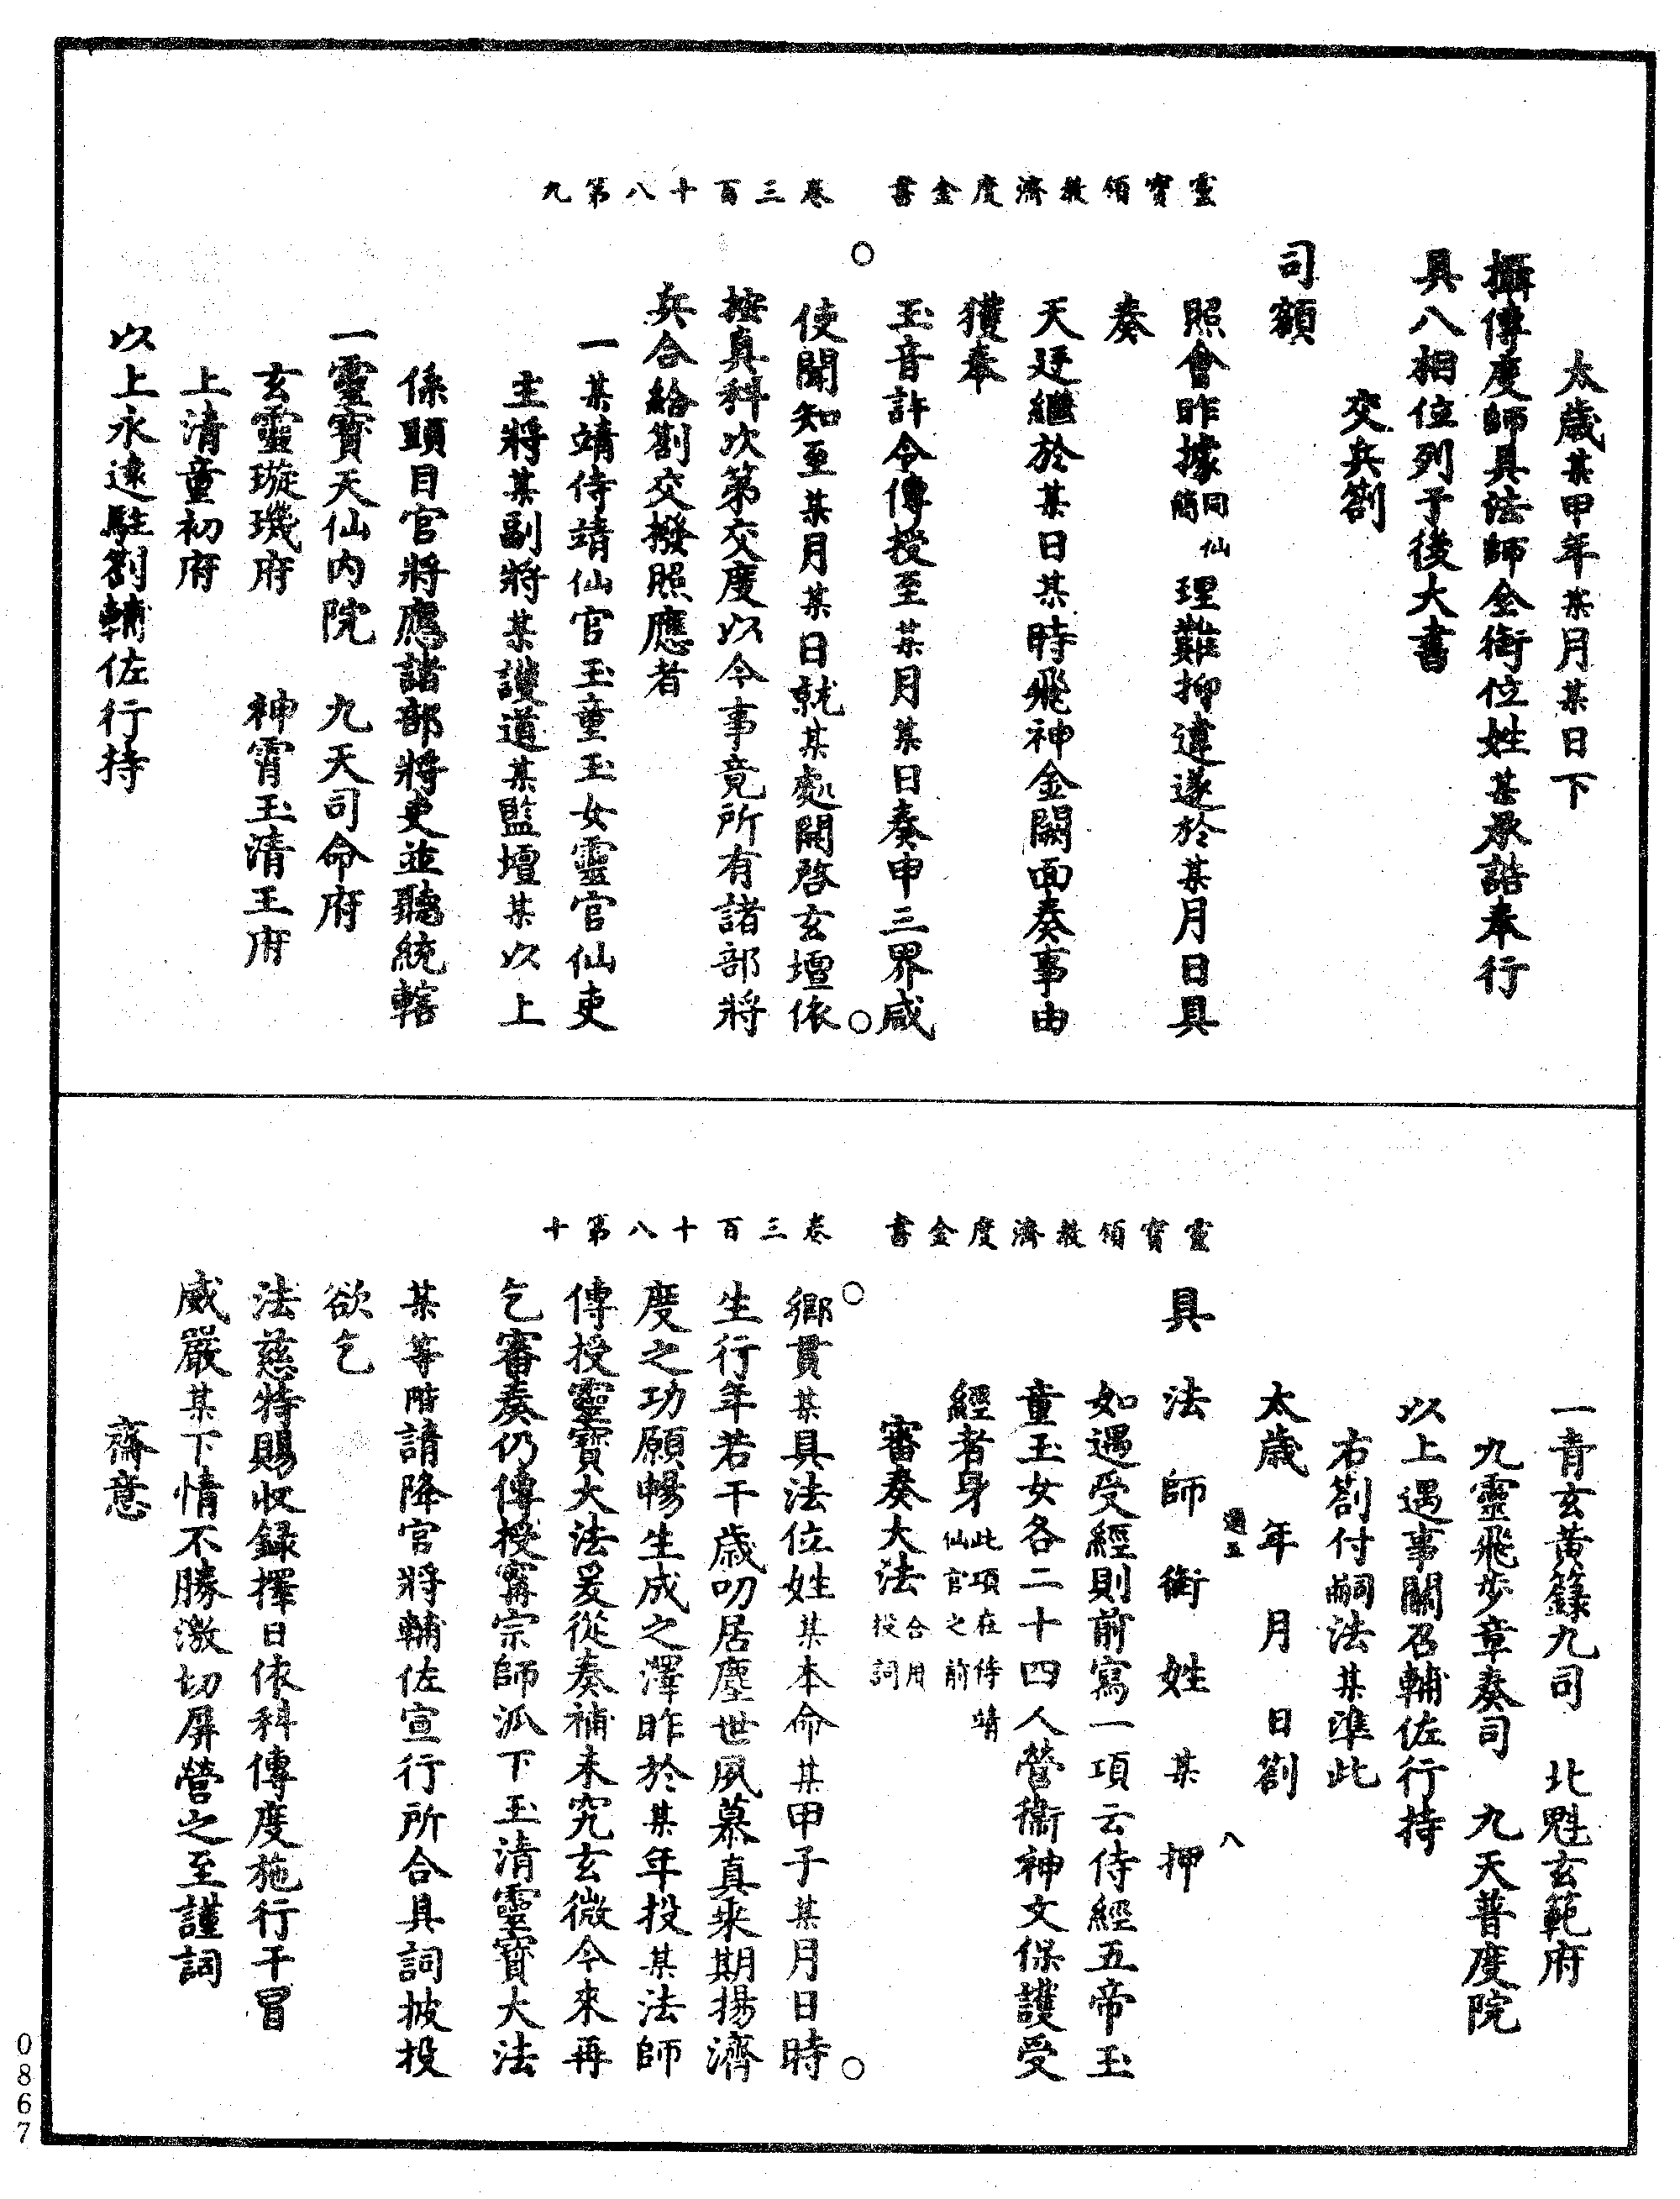 靈寶領教濟度金書　卷三百十八第九
太歲某甲年某月某日下
攝傳度師具法師全銜位姓某承誥奉行
具八相位列于後大書
交兵劄
司額
照會昨據同仙簡理難抑違遂於某月日具
奏
天廷繼於某日某時飛神金闕面奏事由
獲奉
玉音許令傳授至某月某日奏申三界咸
使聞知至某月某日就某處開啓玄壇依
按真科次第交度以今事竟所有諸部將
兵合給劄交撥照應者
一某靖侍靖仙官玉童玉女靈官仙吏
主將某副將某護道某監壇某以上
係顯目官將應諸部將吏並聽統轄
一靈寶天仙內院　九天司命府
玄靈璇璣府　神霄玉清王府
上清童初府
以上永遠駐劄輔佐行持
靈寶領教濟度金書　卷三百十八第十
一青玄黃籙九司　北魁玄範府
九靈飛步章奏司　九天普度院
以上遇事關召輔佐行持
右劄付嗣法某準此
太歲　年　月　日劄
通五　八
具法師銜姓某押
如遇受經則前寫一項云侍經五帝玉
童玉女各二十四人營衞神文保護受
經者身此項在侍靖仙官之前
審奏大法合用投詞
鄉貫某具法位姓某本命某甲子某月日時
生行年若干歲叨居塵世夙慕真乘期揚濟
度之功願暢生成之澤昨於某年投某法師
傳授靈寶大法爰從奏補未究玄微今來再
乞審奏仍傳授甯宗師派下玉清靈寶大法
某等階請降官將輔佐宣行所合具詞披投
欲乞
法慈特賜收錄擇日依科傳度施行干冒
威嚴某下情不勝激切屏營之至謹詞
齋意
0867